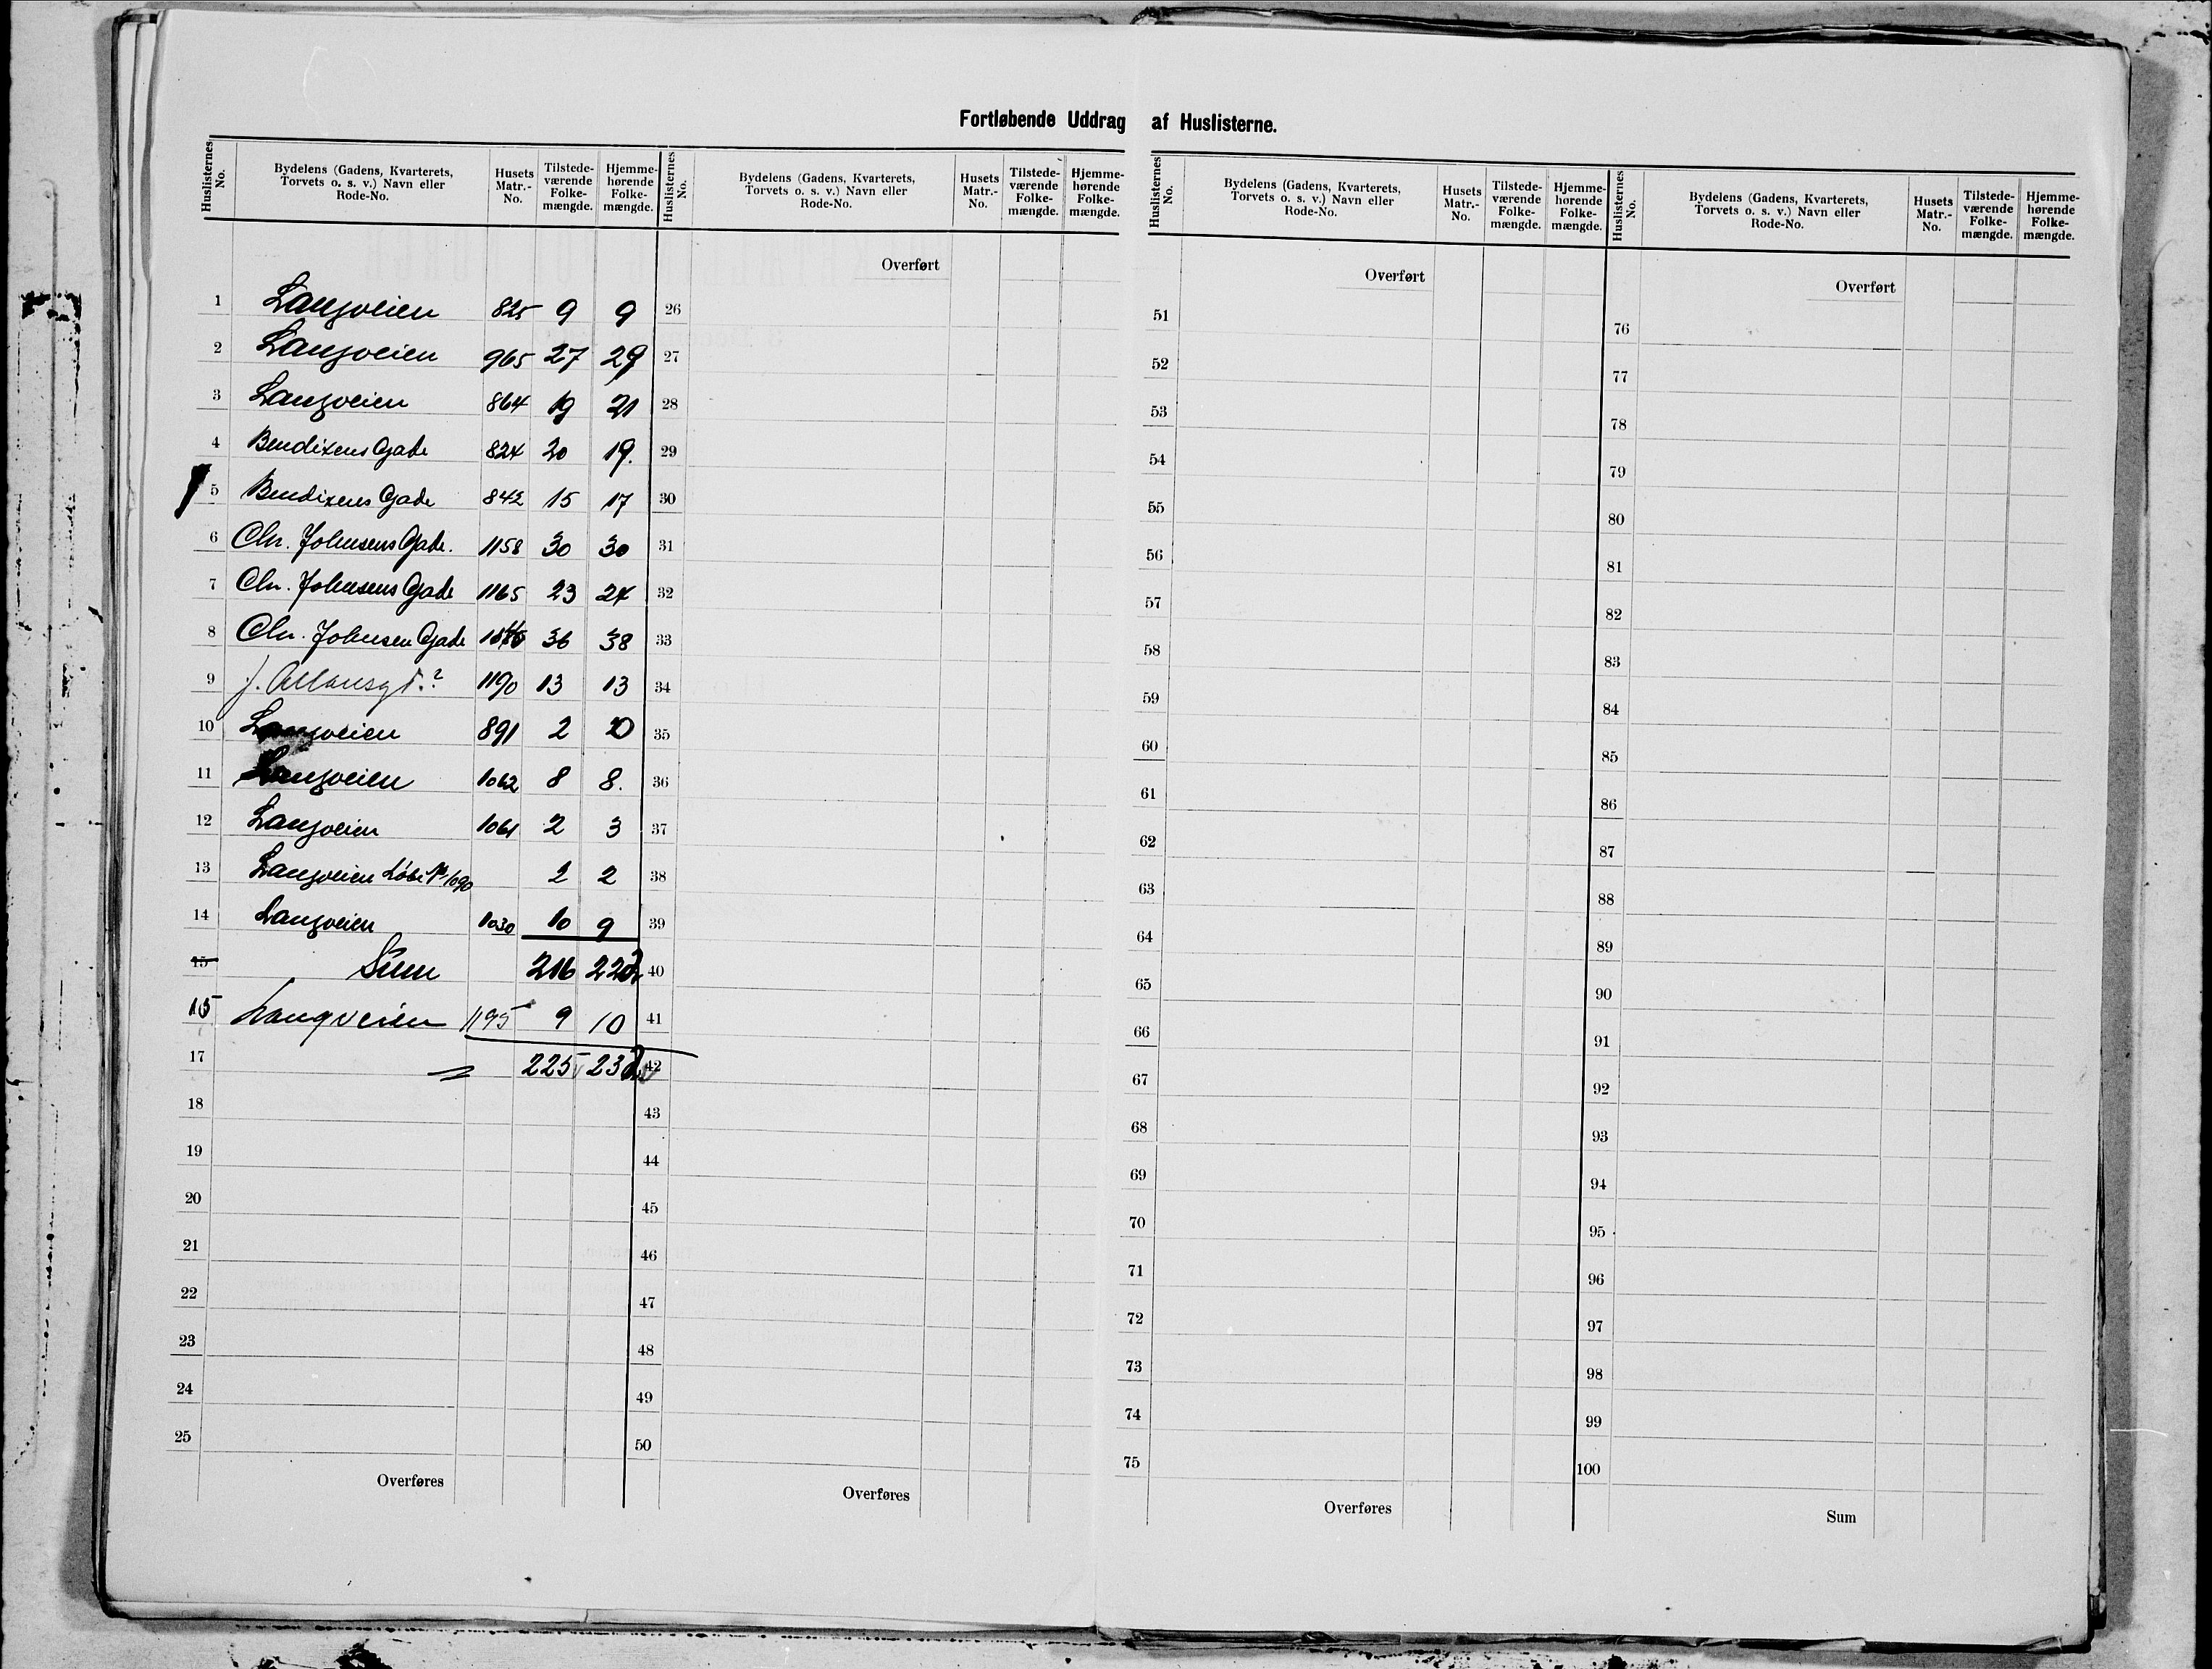 Fortløbende Uddrag af Huslisterne.
Huslisternes No. Bydelens (Gadens, Kvarterets, Torvets o. s. v.) Navn eller Rode-No. Husets Matr.-No. Tilstede-værende Folke-mængde. Hjemme-hørende Folke-mængde.
1 Langveien 825 9 9
2 Langveien 965 27 29
3 Langveien 864 19 21
4 Bendixens Gade 824 20 19.
5 Bendixens Gade 842 15 17
6 Chr. Johnsens Gade. 1158 30 30
7 Chr. Johnsens Gade 1165 23 24
8 Chr. Johnsen Gade 36 38
9 J. Allansgt.? 1190 13 13
10 Langveien 891 2
11 Langveien 1062 8 8.
12 Langveien 1061 2 3
13 Langveien Løbe No 1090 2 2
14 Langveien 1030 10 9
15 Sum 216 222
15 Langveien 1195 9 10
17 225 232
18
19
20
21
22
23
24
25
Overføres
Huslisternes No. Bydelens (Gadens, Kvarterets, Torvets o. s. v.) Navn eller Rode-No. Husets Matr.-No. Tilstede-værende Folke-mængde. Hjemme-hørende Folke-mængde.
Overført
26
27
28
29
30
31
32
33
34
35
36
37
38
39
40
41
42
43
44
45
46
47
48
49
50
Overføres
Huslisternes No. Bydelens (Gadens, Kvarterets, Torvets o. s. v.) Navn eller Rode-No. Husets Matr.-No. Tilstede-værende Folke-mængde. Hjemme-hørende Folke-mængde.
Overført
51
52
53
54
55
56
57
58
59
60
61
62
63
64
65
66
67
68
69
70
71
72
73
74
75
Overføres
Huslisternes No. Bydelens (Gadens, Kvarterets, Torvets o. s. v.) Navn eller Rode-No. Husets Matr.-No. Tilstede-værende Folke-mængde. Hjemme-hørende Folke-mængde.
Overført
76
77
78
79
80
81
82
83
84
85
86
87
88
89
90
91
92
93
94
95
96
97
98
99
100
Sum